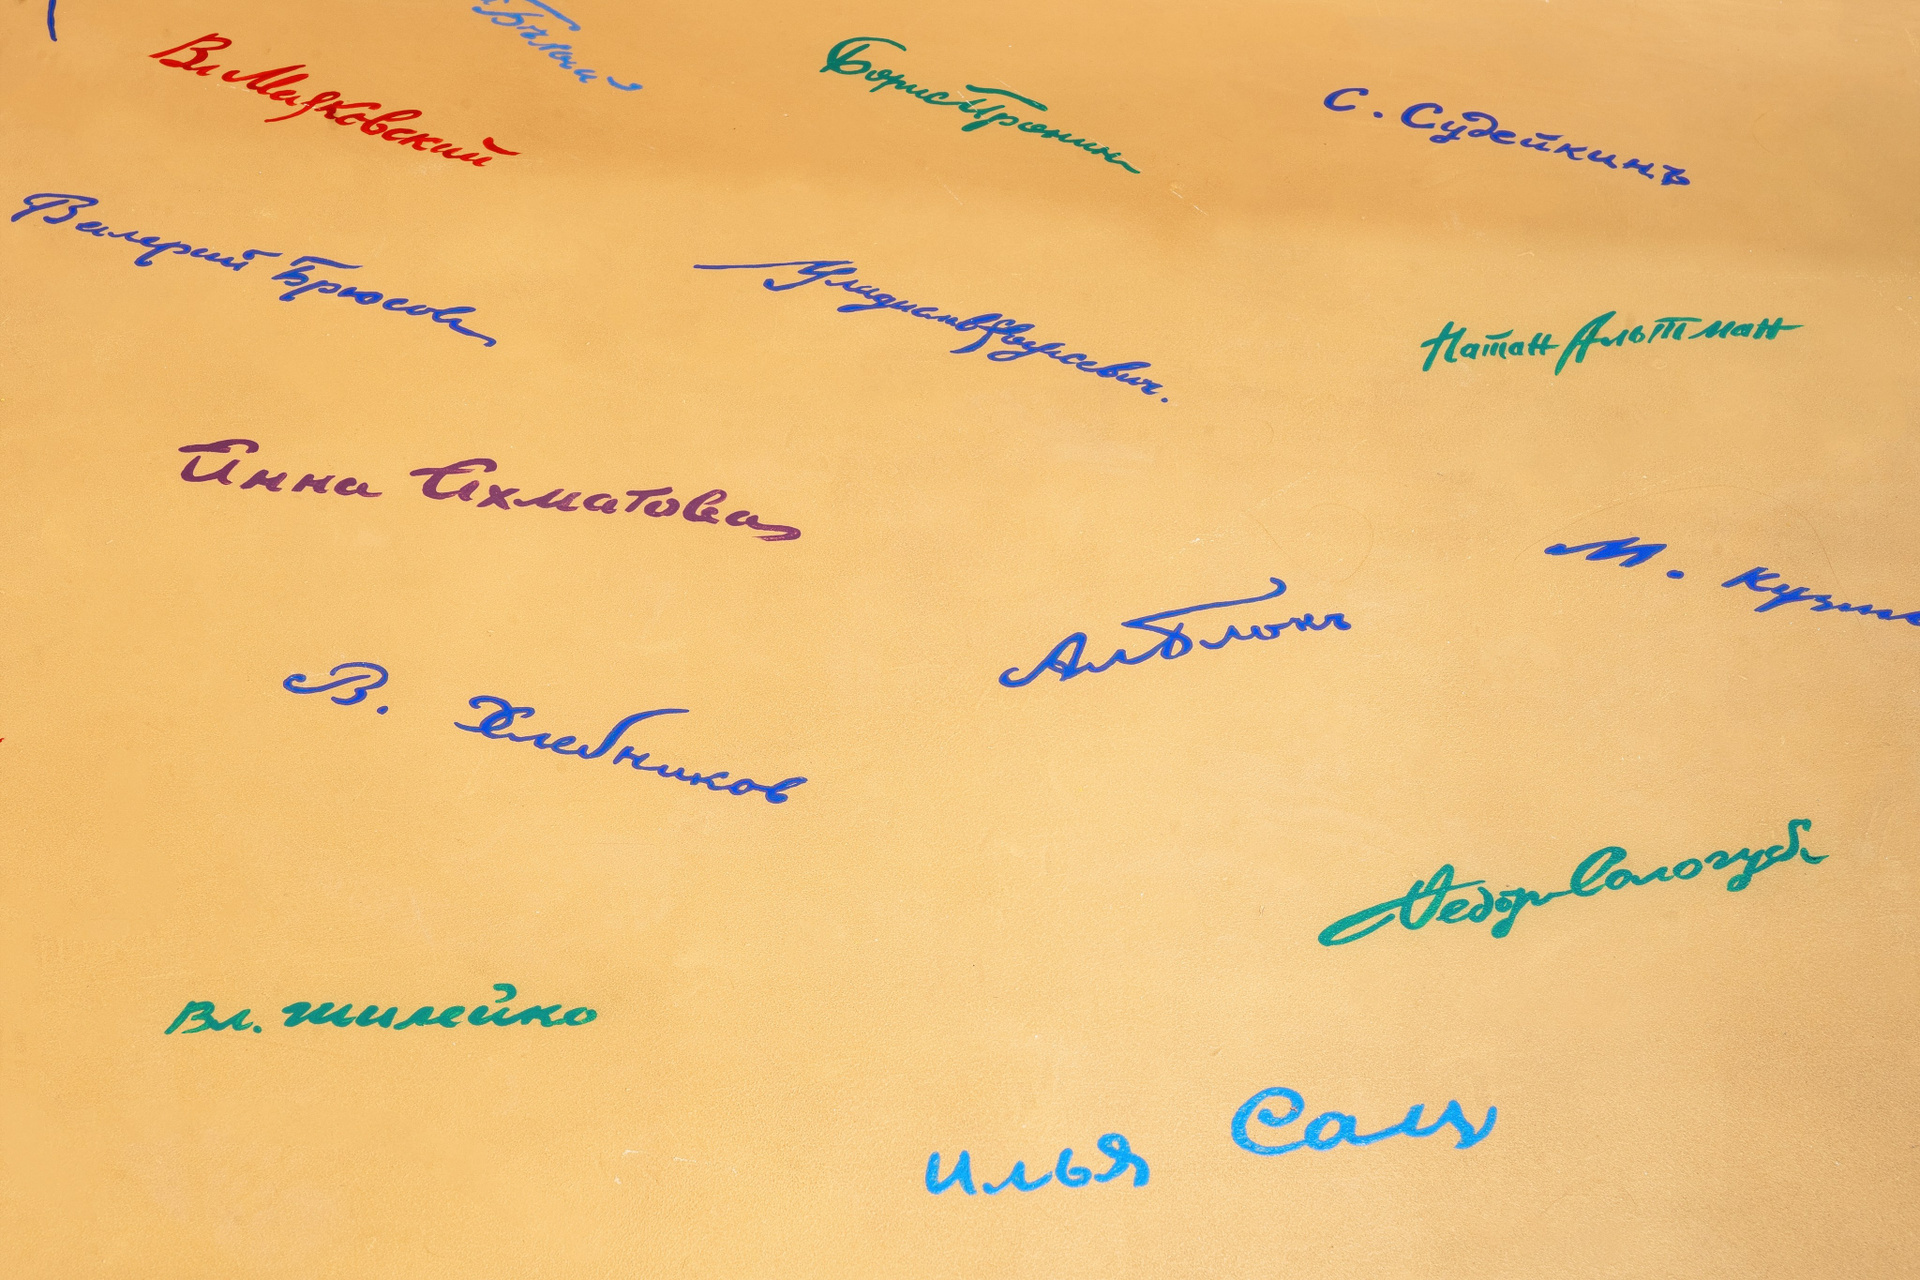 Вл. Маяковский
Борис Пронин
С. Судейкинъ
Валерий Брюсов
Натан Альтман
Анна Ахматова
М. Кузми
Ал Блокъ
В. Хлебников
Федор Сологуб
Вл. Шилейко
Илья Сац